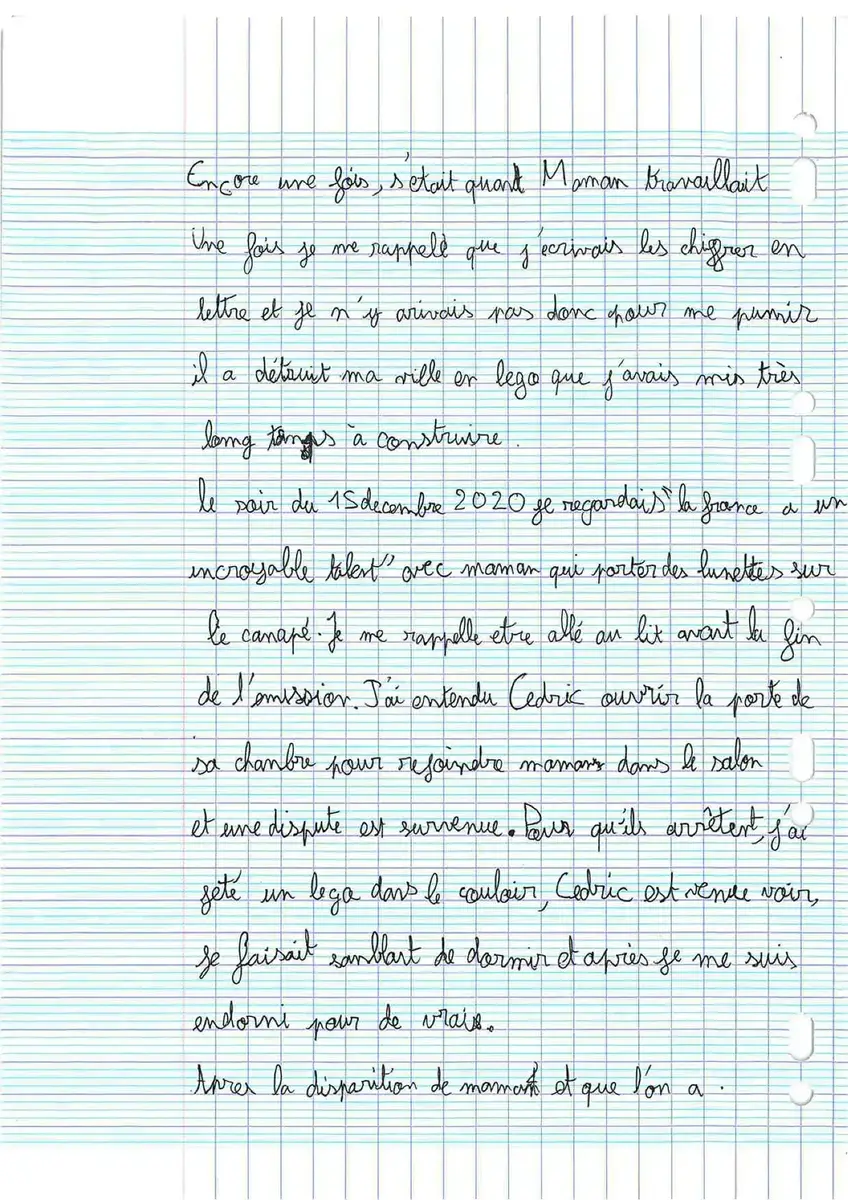 Encore une fois, s'était quant Maman travaillait
Une fois je me rappelé que j'écrivais les chiffrer en
lettre et je n'y arivais pas donc pour me punir
il a détruit ma ville en lego que j'avais mis très
long temps à construire.
le soir du 15 decembre 2020 je regardais "la france a un
incroyable talent" avec maman qui porter des lunettes sur
le canapé. Je me rappelle etre allé au lit avant la fin
de l'emission. J'ai entendu Cedric ouvrir la porte de
sa chanbre pour rejoindre maman dans le salon
et une dispute est survenue. Pour qu'ils arrêtent, j'ai
jeté un lego dans le couloir, Cedric est venue voir,
je faisait sanblant de dormir et après je me suis
endormi pour de vrais.
Apres la disparition de maman et que l'on a.